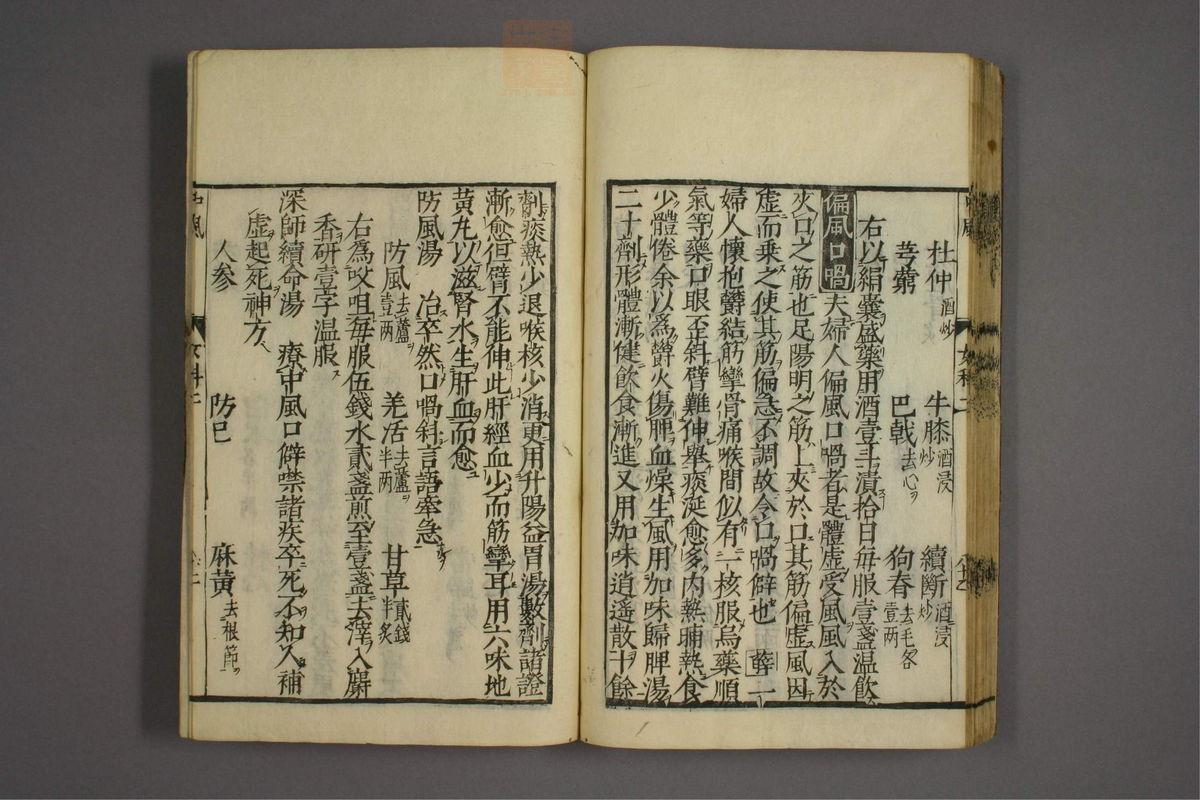 杜仲酒炒 牛膝酒浸炒 續斷酒浸炒
芎藭 巴戟去心 狗脊去毛各壹兩
右以絹囊盛藥用酒壹斗漬拾日毎服壹盞温飲
偏風口喎夫婦人偏風口喎者是體虚受風風入於
夾口之筋也足陽明之筋上夾於口其筋偏虚風因
虚而乗之使其筋偏急不調故令口喎僻也 薛一
婦人懷抱欝結筋攣骨痛喉間似有一核服烏藥順
氣等藥口眼歪斜臂難伸舉痰涎愈多内熱晡熱食
少體倦余以爲欝火傷脾血燥生風用加味歸脾湯
二十劑形體漸健飲食漸進又用加味逍遥散十餘
劑痰熱少退喉核少消更用升陽益胃湯數劑諸證
漸愈但臂不能伸此肝經血少而筋攣耳用六味地
黄丸以滋腎水生肝血而愈
防風湯 治卒然口喎斜言語牽急
防風去蘆壹兩 羌活去蘆半兩 甘草貳錢半炙
右爲㕮咀毎服伍錢水貳盞煎至壹盞去滓入麝
香研壹字温服
深師續命湯 療中風口僻噤諸疾卒死不知人補
虚起死神方
人參 防已 麻黄去根節
女科二